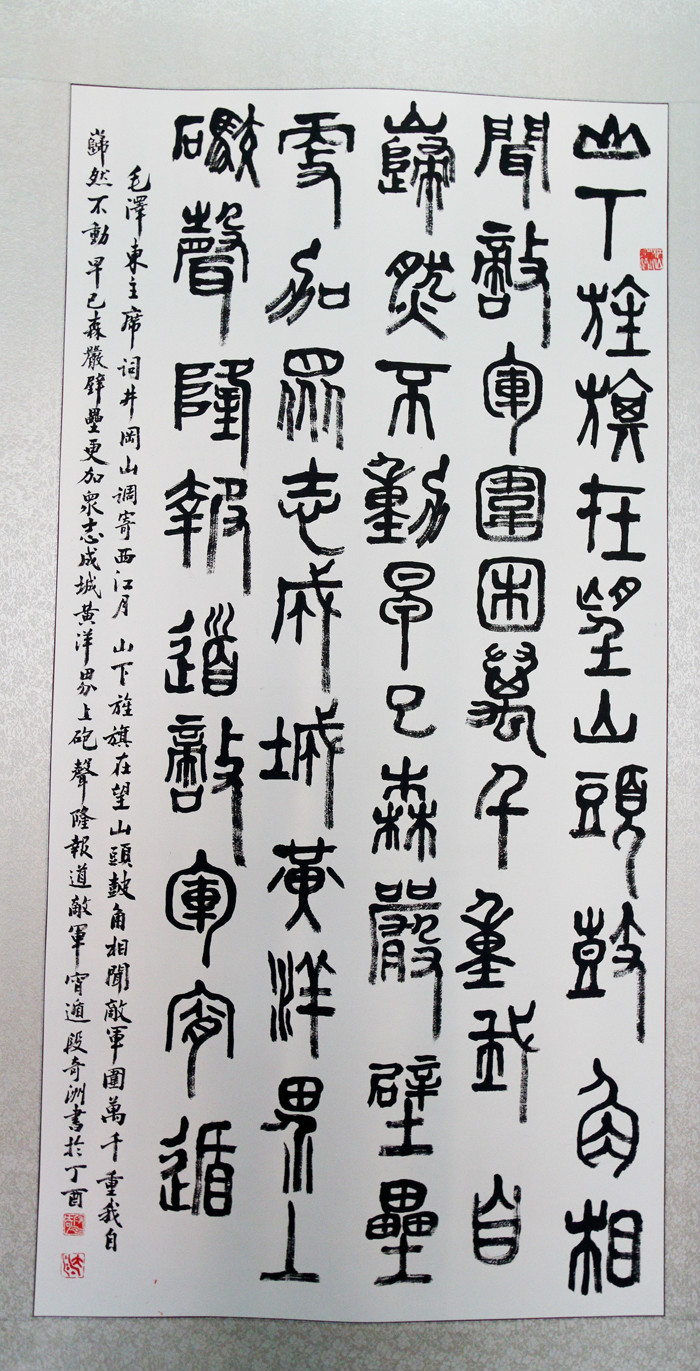 山下旌旗在望山頭鼓角相
聞敵軍圍困萬千重我自
巋然不動早已森嚴壁壘
更加眾志成城黃洋界上
礮聲隆報道敵軍宵遁
毛澤東主席詞井岡山調寄西江月 山下旌旗在望山頭皷角相聞敵軍圍萬千重我自
巋然不動早已森嚴壁壘更加衆志成城黃洋界上砲聲隆報道敵軍宵遁段奇洲書於丁酉